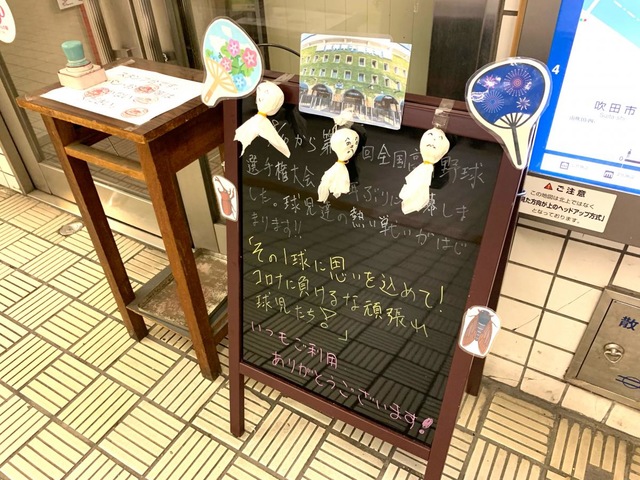 から第 回全国高 野球
選手権大会 年ぶりに 帰しま
した。球児達の熱い戦いがはじ
まります!!
「その1球に思いを込めて!
コロナに負けるな頑張れ
球児たち!」
いつもご利用
ありがとうございます!
4
吹田市
Suita
ご注意
この地図は北上ではなく
見た方向が上のヘッドアップ方式
となっております。
散